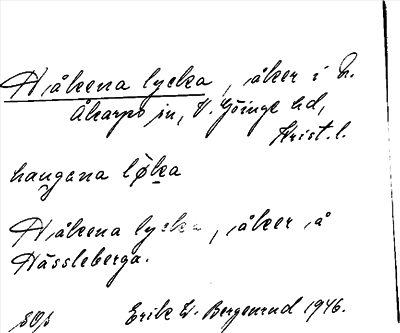 Håkena lycka, åker i N.
Åkarps sn, V. Göinge hd,
Krist. l.
haugana løka
Håkena lycka, åker å
Hässleberga.
Erik W. Bergenrud 1946.